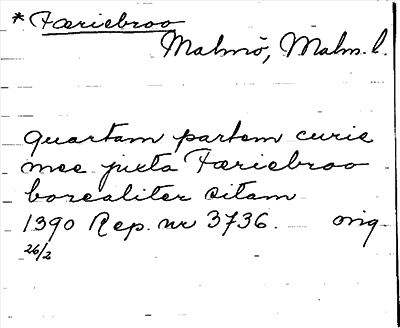 * Færiebroo
Malmö, Malm. l.
quartam partem curie
mee juxta Færiebroo
borealiter sitam
1390 Rep. nr 3736. orig
26/2